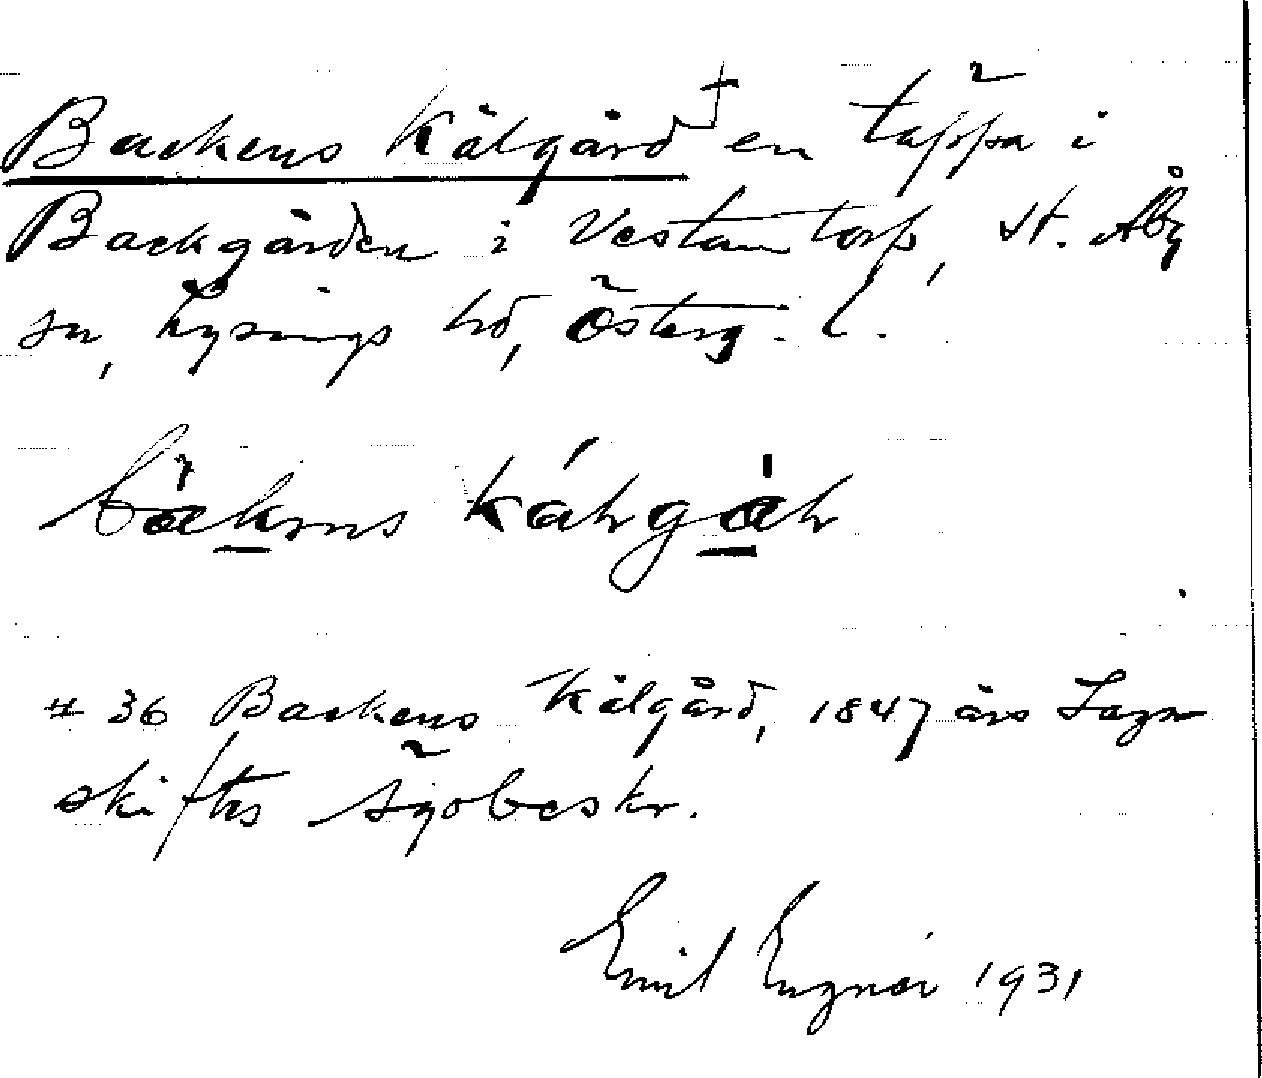 Backens Kålgård † en täppa i
Backgården i Vestantorp, St. Åby
sn, Lysings hd, Österg. l.
kålgå
# 36 Backens Kålgård, 1847 års Laga
skiftes ägobeskr.
Emil Engnér 1931